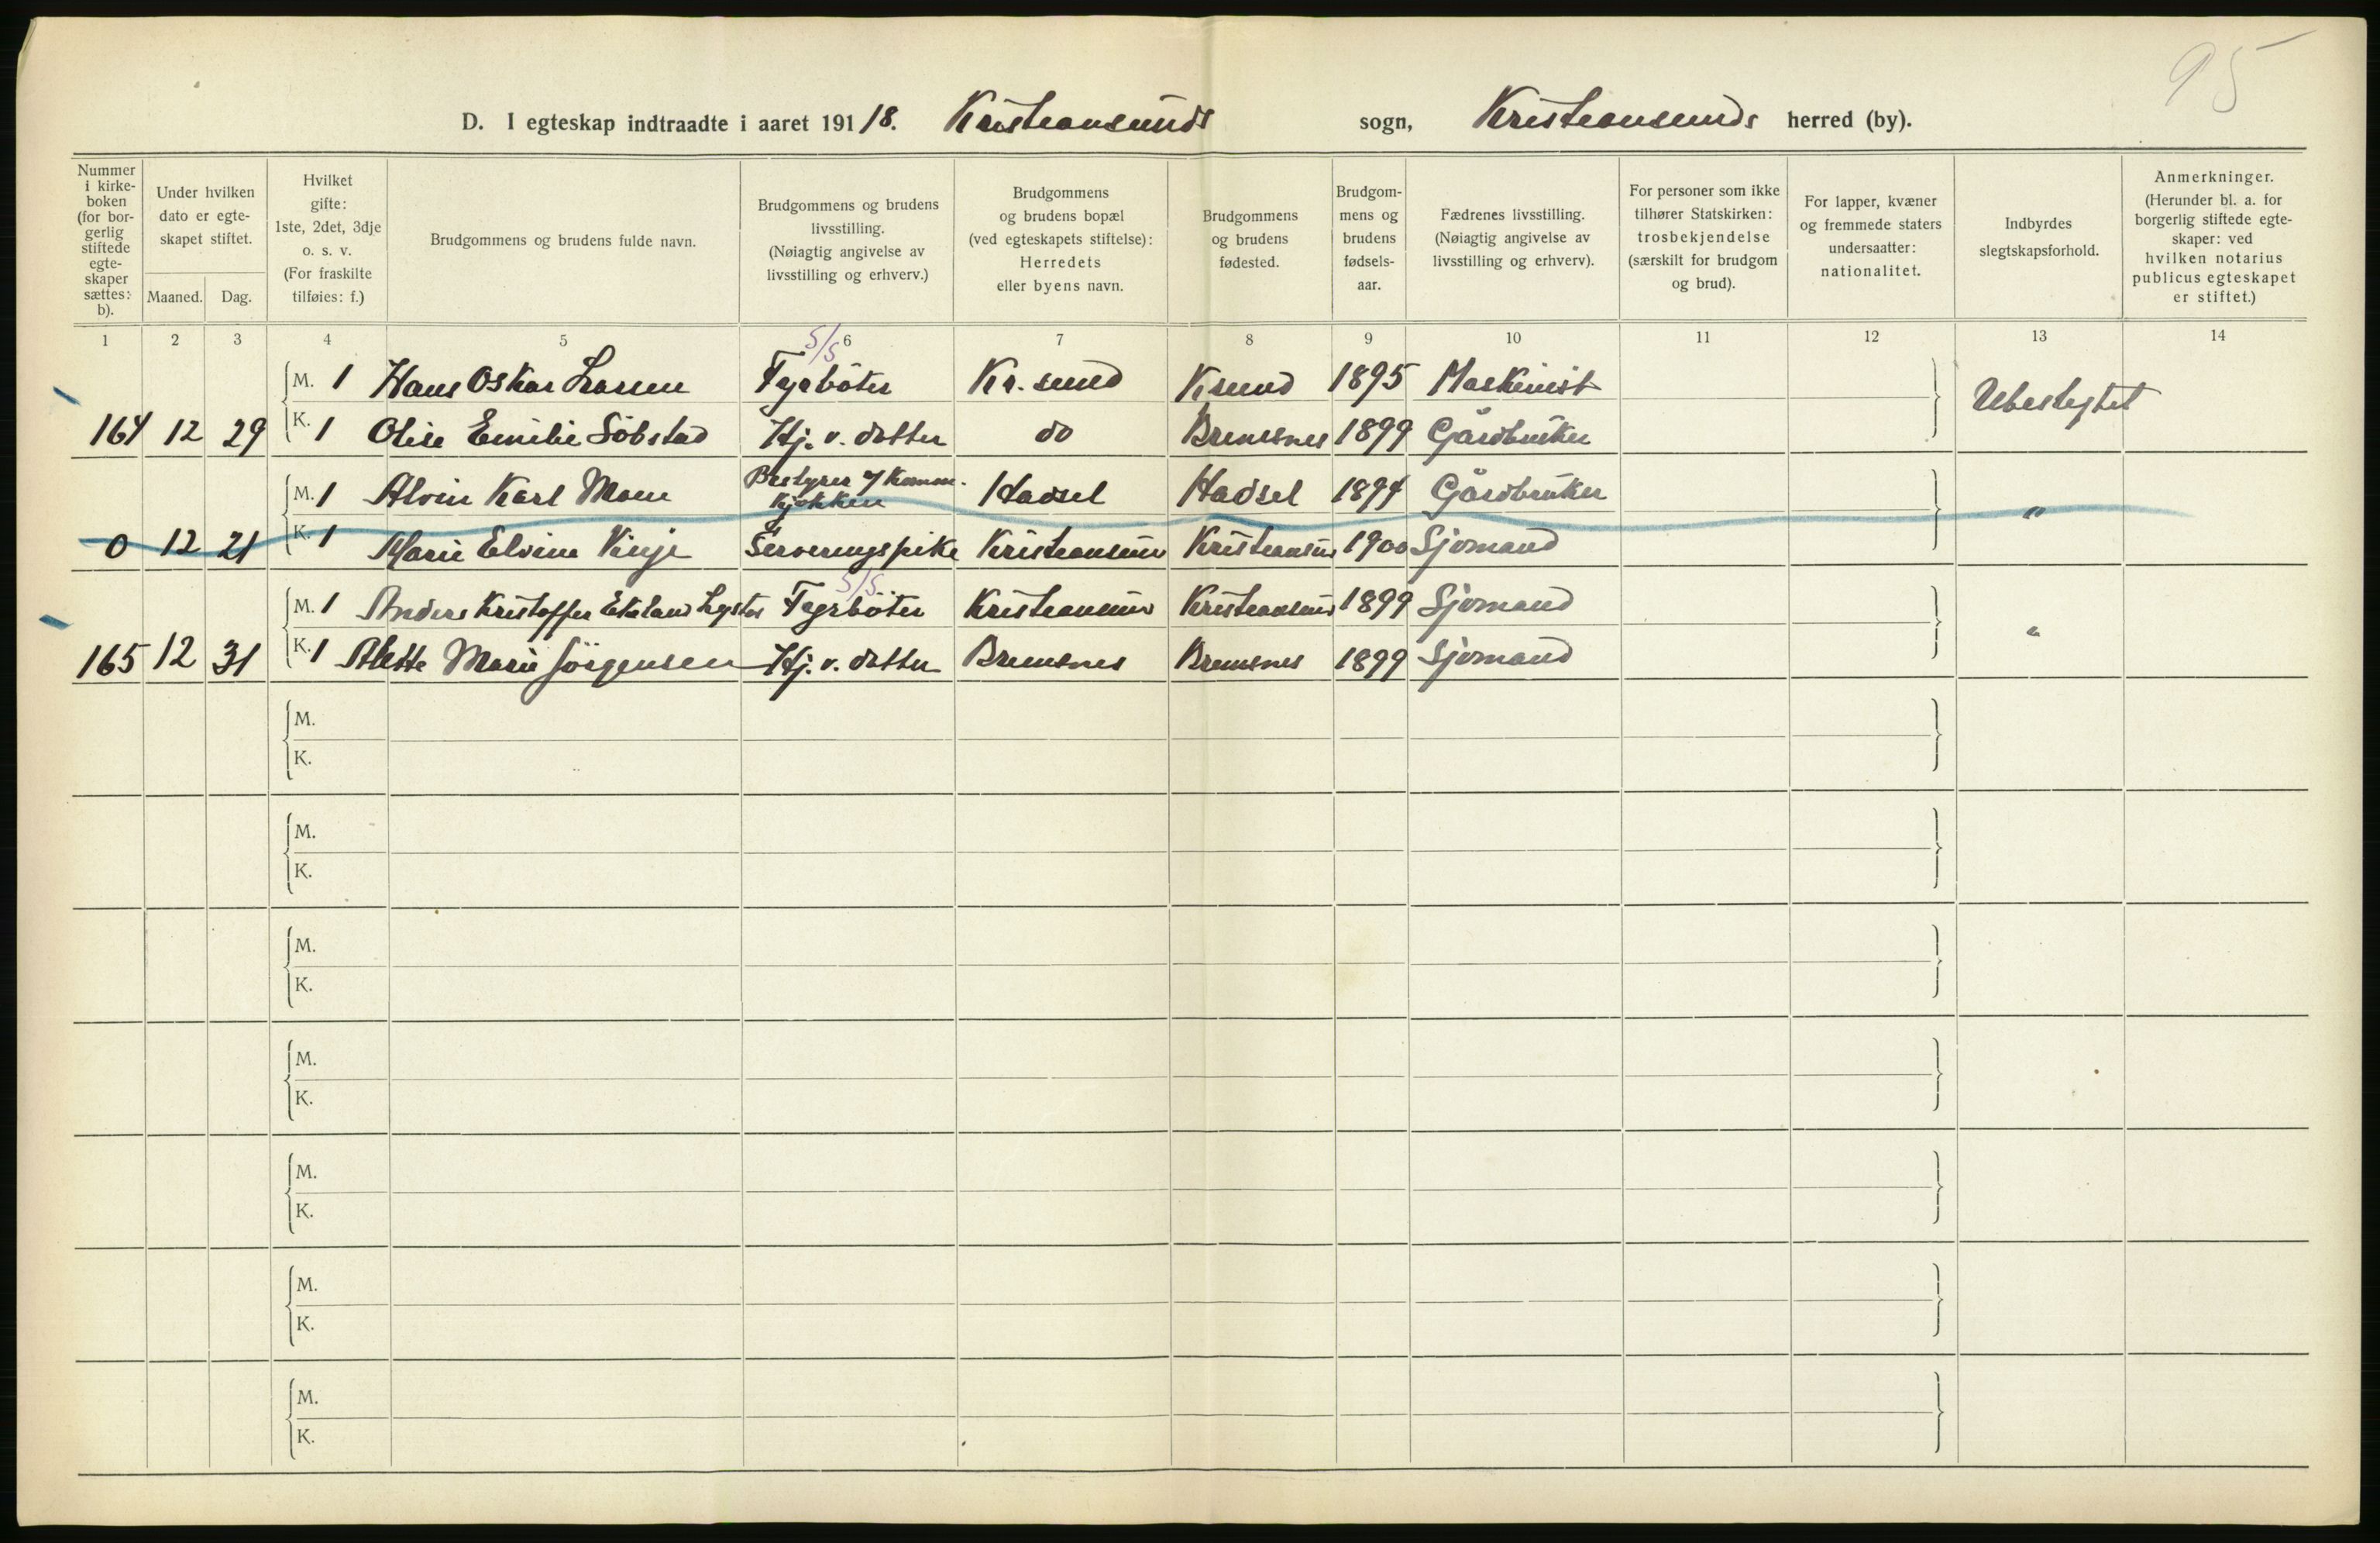 95
D. I egteskap indtraadte i aaret 191 18. Kristiansunds sogn, Kristiansunds herred (by).
Nummer i kirke-boken (for bor-gerlig stiftede egte-skaper sættes: b).
Under hvilken dato er egte-skapet stiftet.
Maaned. Dag.
Hvilket gifte: 1ste, 2det, 3dje o. s. v. (For fraskilte tilføies: f.)
Brudgommens og brudens fulde navn.
Brudgommens og brudens livsstilling. (Nøiagtig angivelse av livsstilling og erhverv.)
Brudgommens og brudens bopæl (ved egteskapets stiftelse): Herredets eller byens navn.
Brudgommens og brudens fødested.
Brudgom-mens og brudens fødsels-aar.
Fædrenes livsstilling. (Nøiagtig angivelse av livsstilling og erhverv).
For personer som ikke tilhører Statskirken: trosbekjendelse (særskilt for brudgom og brud).
For lapper, kvæner og fremmede staters undersaatter: nationalitet.
Indbyrdes slegtskapsforhold.
Anmerkninger. (Herunder bl. a. for borgerlig stiftede egte-skaper: ved hvilken notarius publicus egteskapet er stiftet.)
1 2 3 4 5 6 7 8 9 10 11 12 13 14
S/S
M. 1 Hans Oskar Larsen Fyrböter Kr. sund Ksund 1895 Maskinist Ubeslegtet
164 12 29 K. 1 Olise Emilie Söbstad Hj. v. datter do Bremsnes 1899 Gårdbruker
M. 1 Alvin Karl Moen Bestyrer af Komm. kjøkken Hadsel Hadsel 1894 Gårdbruker "
0 12 21 K. 1 Marie Elvine Vinje Serveringspike Kristiansund Kristiansund 1900 Sjömand
S/S
M. 1 Anders Kristoffer Lystad Fyrböter Kristiansund Kristiansund 1899 Sjömand "
165 12 31 K. 1 Alette Marie Jörgensen Hj. v. datter Bremsnes Bremsnes 1899 Sjömand
M.
K.
M.
K.
M.
K.
M.
K.
M.
K.
M.
K.
M.
K.